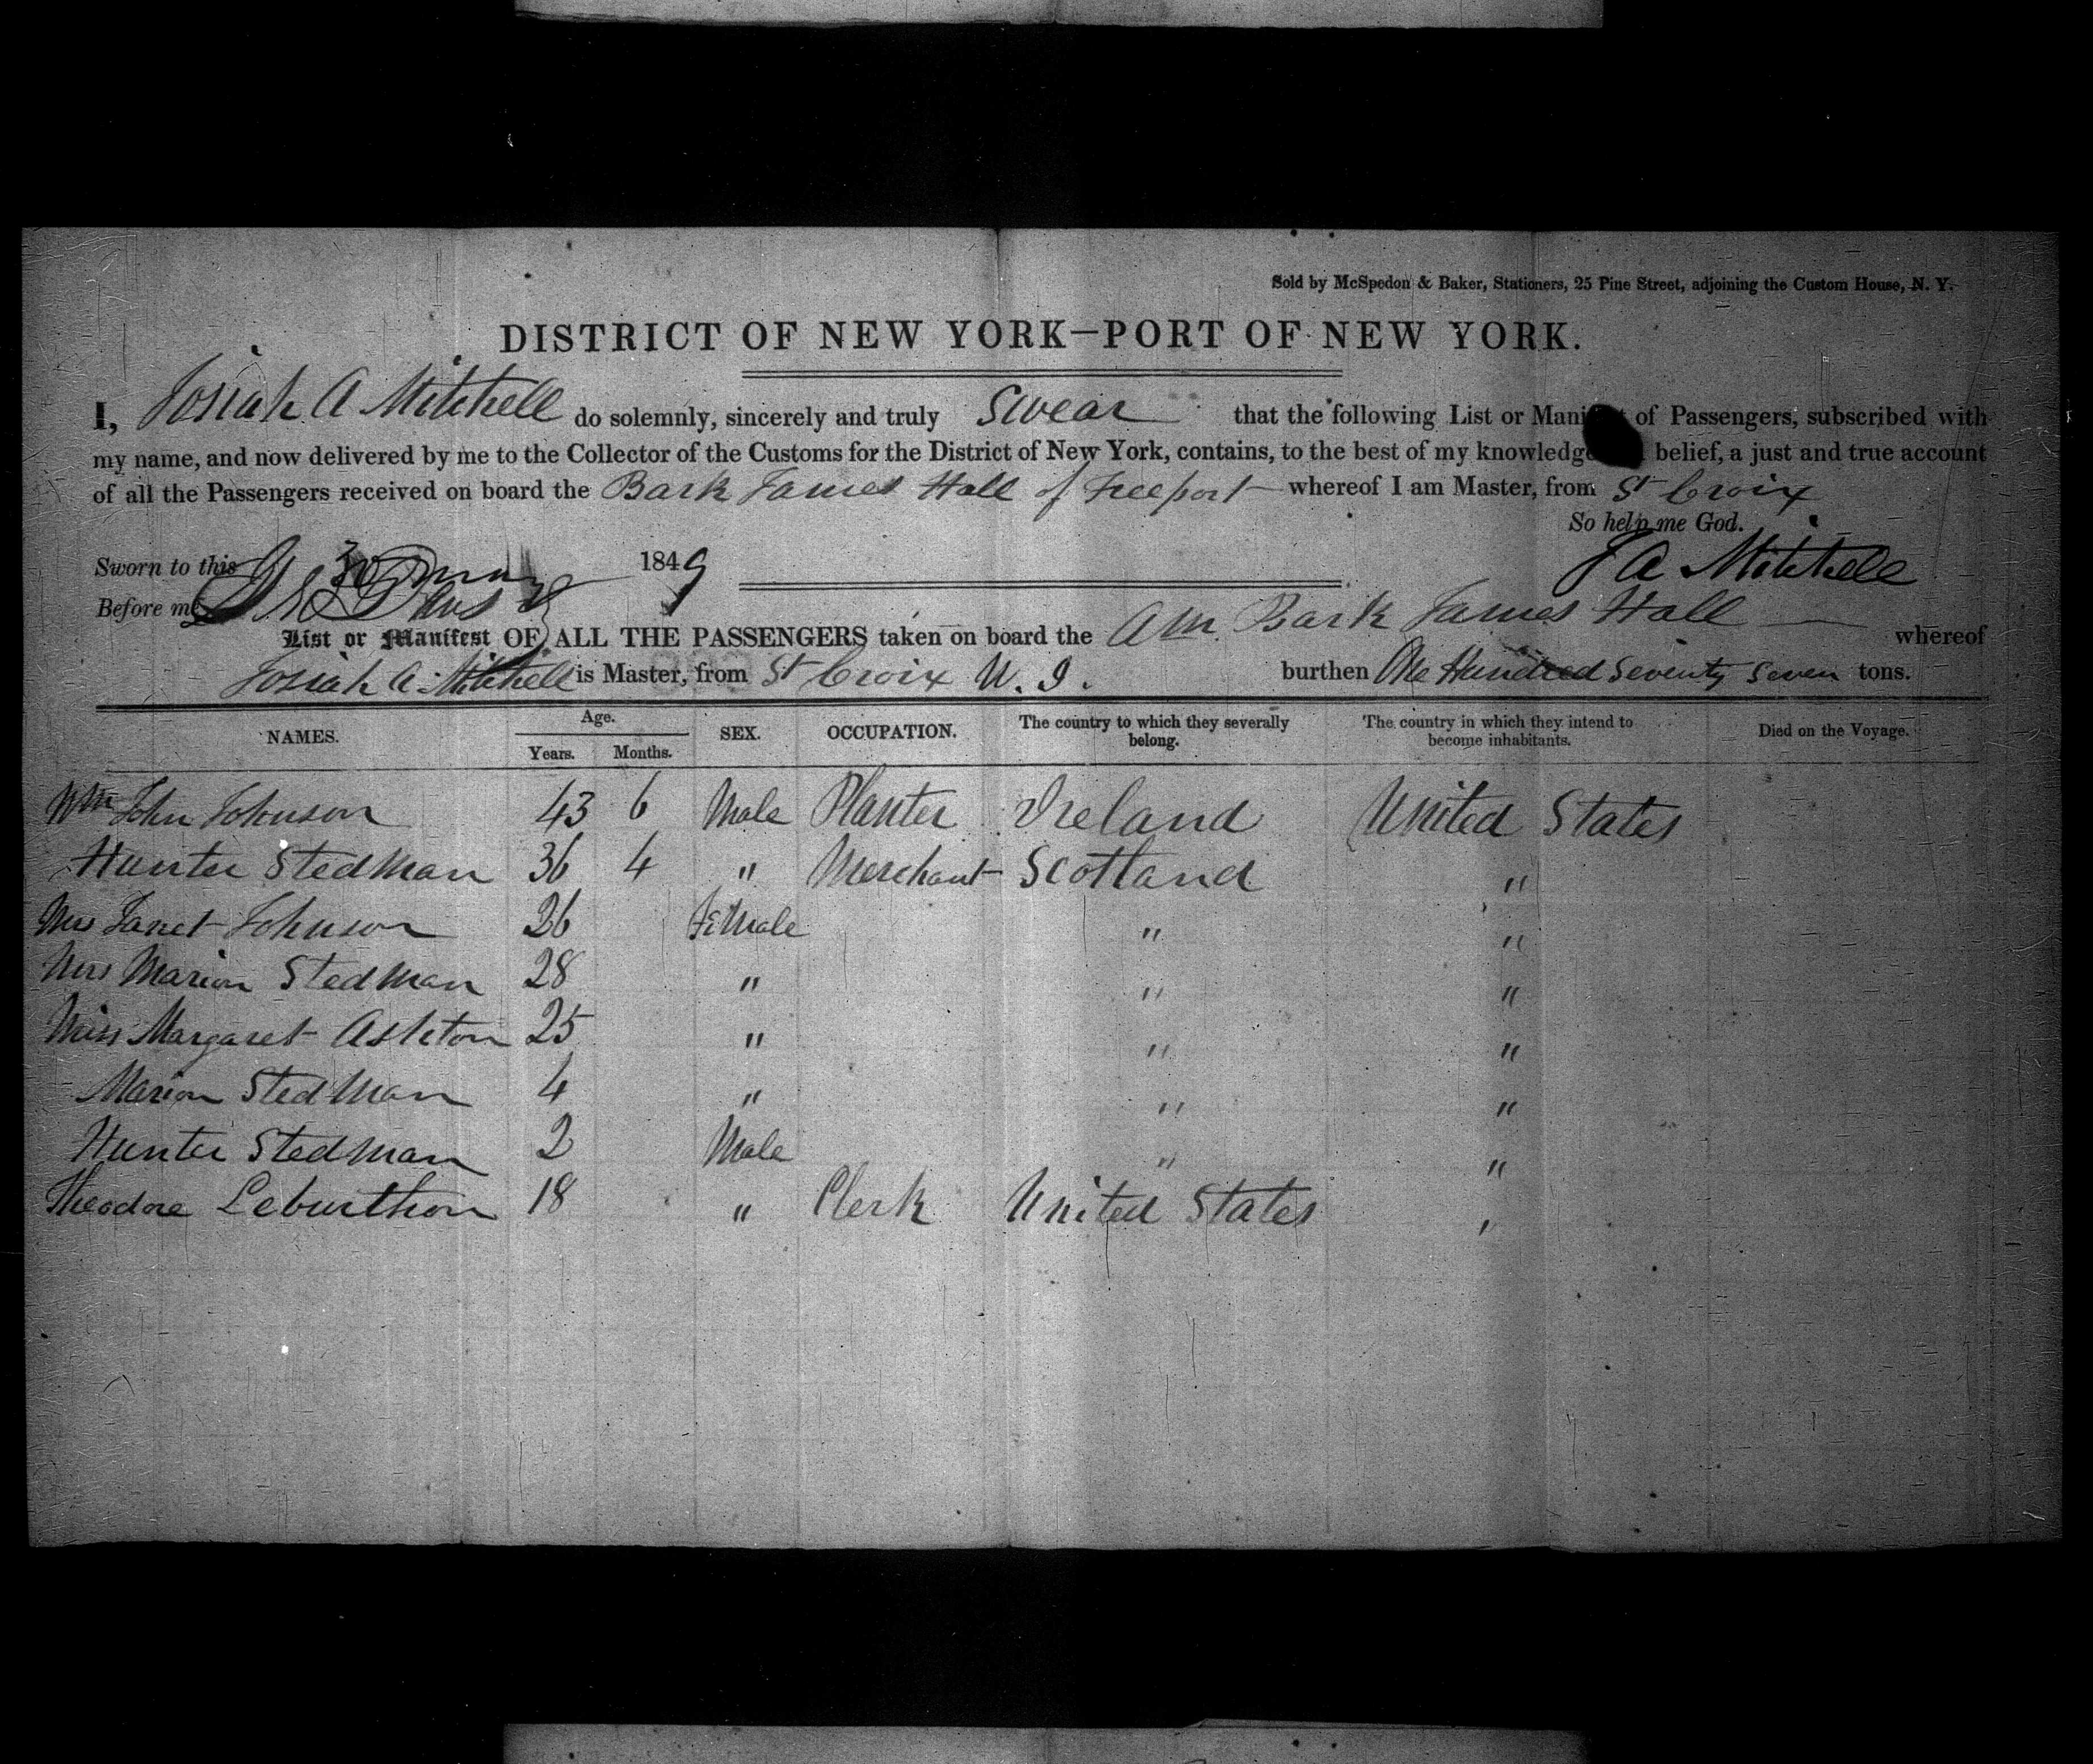 Sold by McSpedon & Baker, Stationers, 25 Pine Street, adjoining the Custom House, N. Y.
DISTRICT OF NEW YORK—PORT OF NEW YORK.
I, Josiah A Mitchell do solemnly, sincerely and truly Swear that the following List or Mani t of Passengers, subscribed with
my name, and now delivered by me to the Collector of the Customs for the District of New York, contains, to the best of my knowledge belief, a just and true account
of all the Passengers received on board the Bark James Hall of Freeport whereof I am Master, from St Croix
So help me God.
Sworn to this 30 1849 J A Mitchell
Before me
List or Manifest OF ALL THE PASSENGERS taken on board the Am. Bark James Hall whereof
Josiah A. Mitchell is Master, from St Croix W. I. burthen One Hundred Seventy Seven tons.
NAMES. Age. Years. Months. SEX. OCCUPATION. The country to which they severally belong. The country in which they intend to become inhabitants. Died on the Voyage.
Wm John Johnson 43 6 Male Planter Ireland United States
Hunter Stedman 36 4 " Merchant Scotland "
Mrs Janet Johnson 26 Female " "
Mrs Marion Stedman 28 " " "
Miss Margaret Ashton 25 " " "
Marion Stedman 4 " " "
Hunter Stedman 2 Male " "
Theodore Leburthon 18 " Clerk United States "